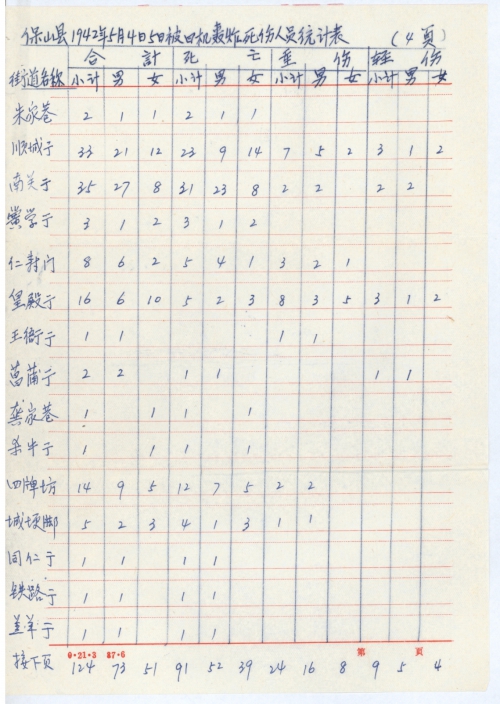 保山县1942年5月4日5日被日机轰炸死伤人员统计表 (4页)
合計 死亡 重伤 轻伤
街道名称 小计 男 女 小计 男 女 小计 男 女 小计 男 女
朱家巷 2 1 1 2 1 1
顺城亍 33 21 12 23 9 14 7 5 2 3 1 2
南关亍 35 27 8 31 23 8 2 2 2 2
黉学亍 3 1 2 3 1 2
仁封门 8 6 2 5 4 1 3 2 1
皇殿亍 16 6 10 5 2 3 8 3 5 3 1 2
王衙亍 1 1 1 1
菖蒲亍 2 2 1 1 1 1
龚家巷 1 1 1 1
杀牛亍 1 1 1 1
四牌坊 14 9 5 12 7 5 2 2
城埂脚 5 2 3 4 1 3 1 1
同仁亍 1 1 1 1
铁路亍 1 1 1 1
羊亍 1 1 1 1
0·21·3 87·6 第 页
接下页 124 73 51 91 52 39 24 16 8 9 5 4